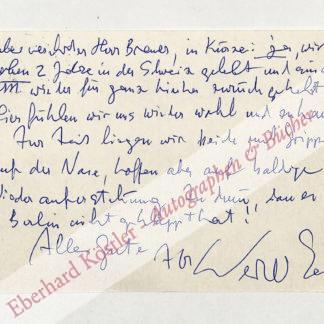 aber verehrter Herr Brauer, in Kürze: ja, wir
haben 2 Jahre in der Schweiz gelebt und sind
jetzt wieder für ganz hierher zurückgekehrt
Hier fühlen wir uns wieder wohl und
Zur Zeit liegen wir beide mit Grippe
auf der Nase, hoffen aber auf baldige
Wiederauferstehung
Berlin nicht geklappt hat!
Alles Gute Ihr Werner
Eberhard Köstler - Autographen & Bücher